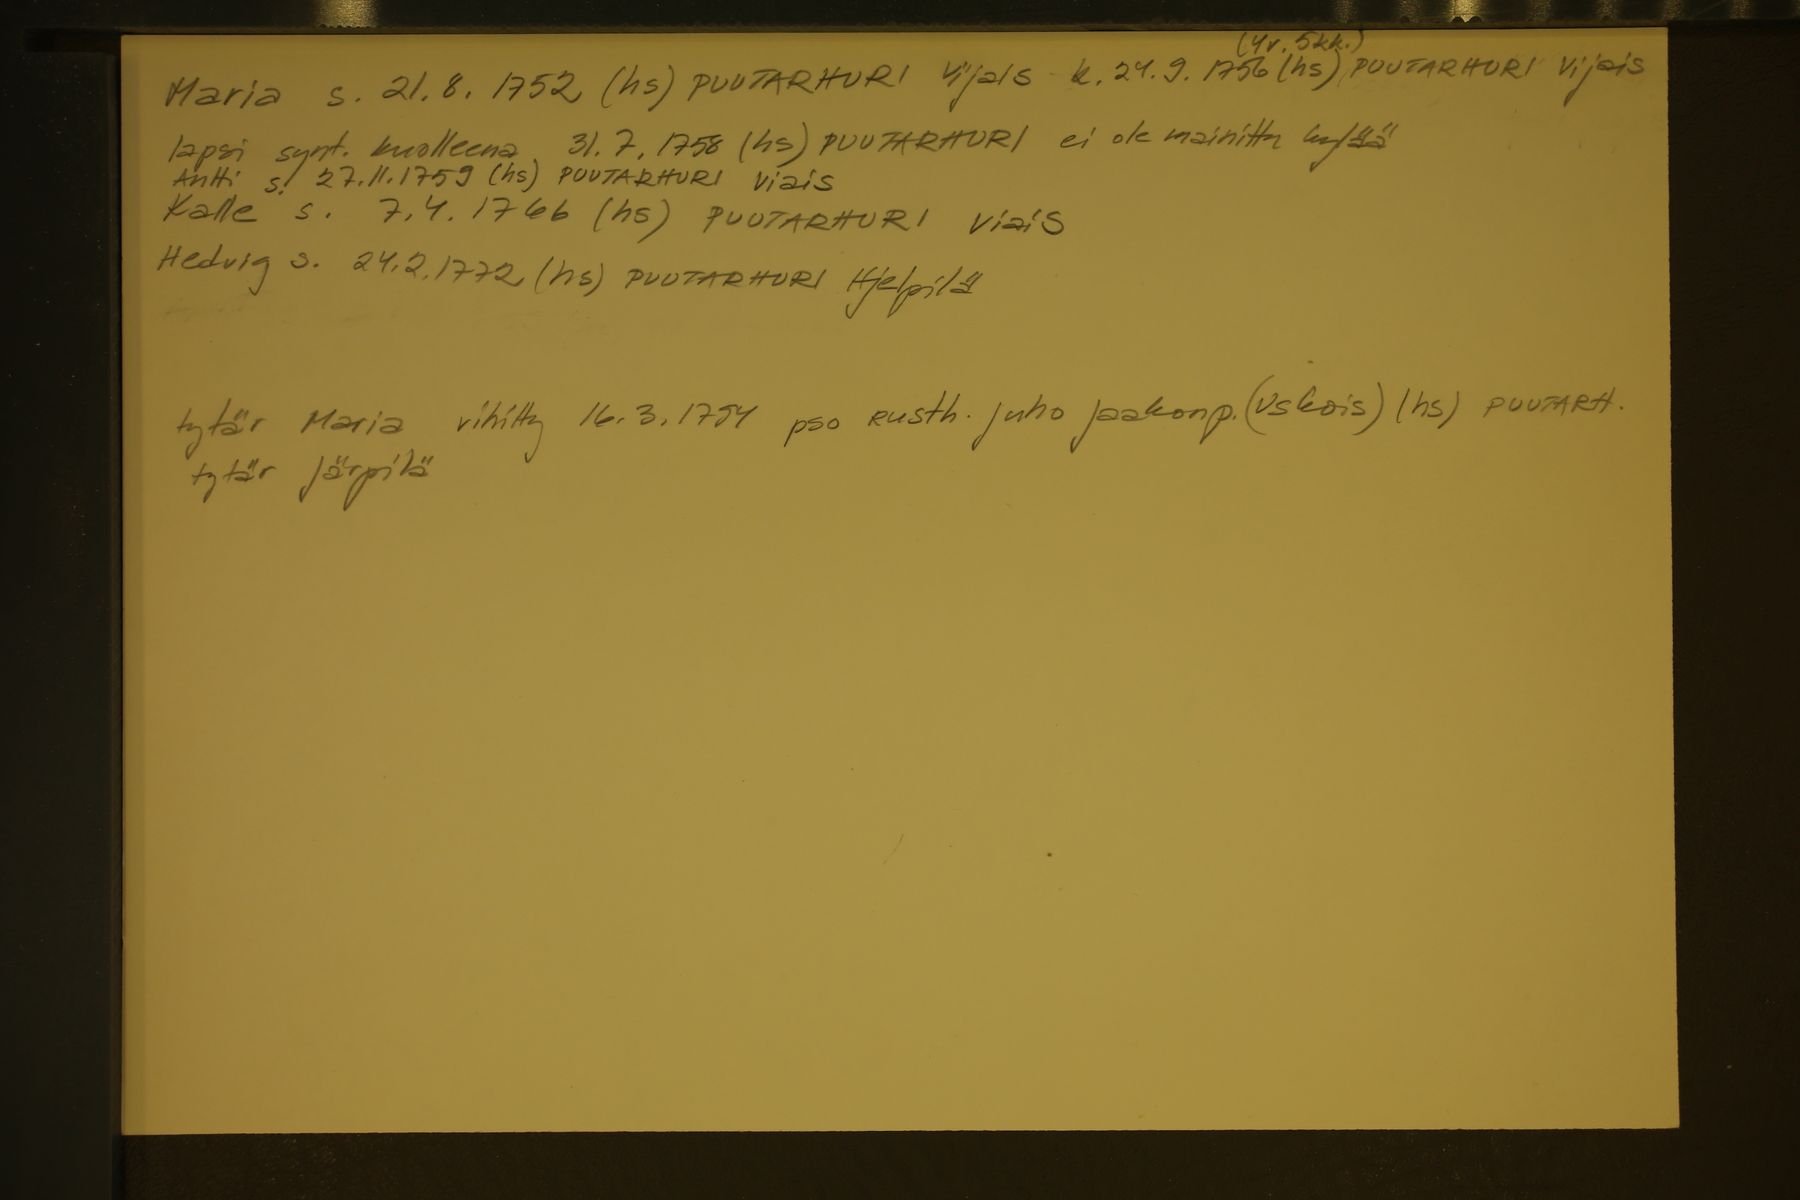 (4v. 5kk.)
Maria s. 21.8. 1752 (hs) PUUTARHURI Vijais k. 24.9. 1756 (hs) PUUTARHURI Vijais
lapsi synt. kuolleena 31.7.1758 (hs) PUUTARHURI ei ole mainittu kylää
Antti s. 27.11.1759 (hs) PUUTARHURI Viais
Kalle s. 7.4.1766 (hs) PUUTARHURI Viais
Hedvig s. 24.2.1772 (hs) PUUTARHURI Hjelpilä
tytär Maria vihitty 16.3.1754 pso Rusth. Juho Jaakonp. (Uskois) (hs) PUUTARH.
tytär Järpilä